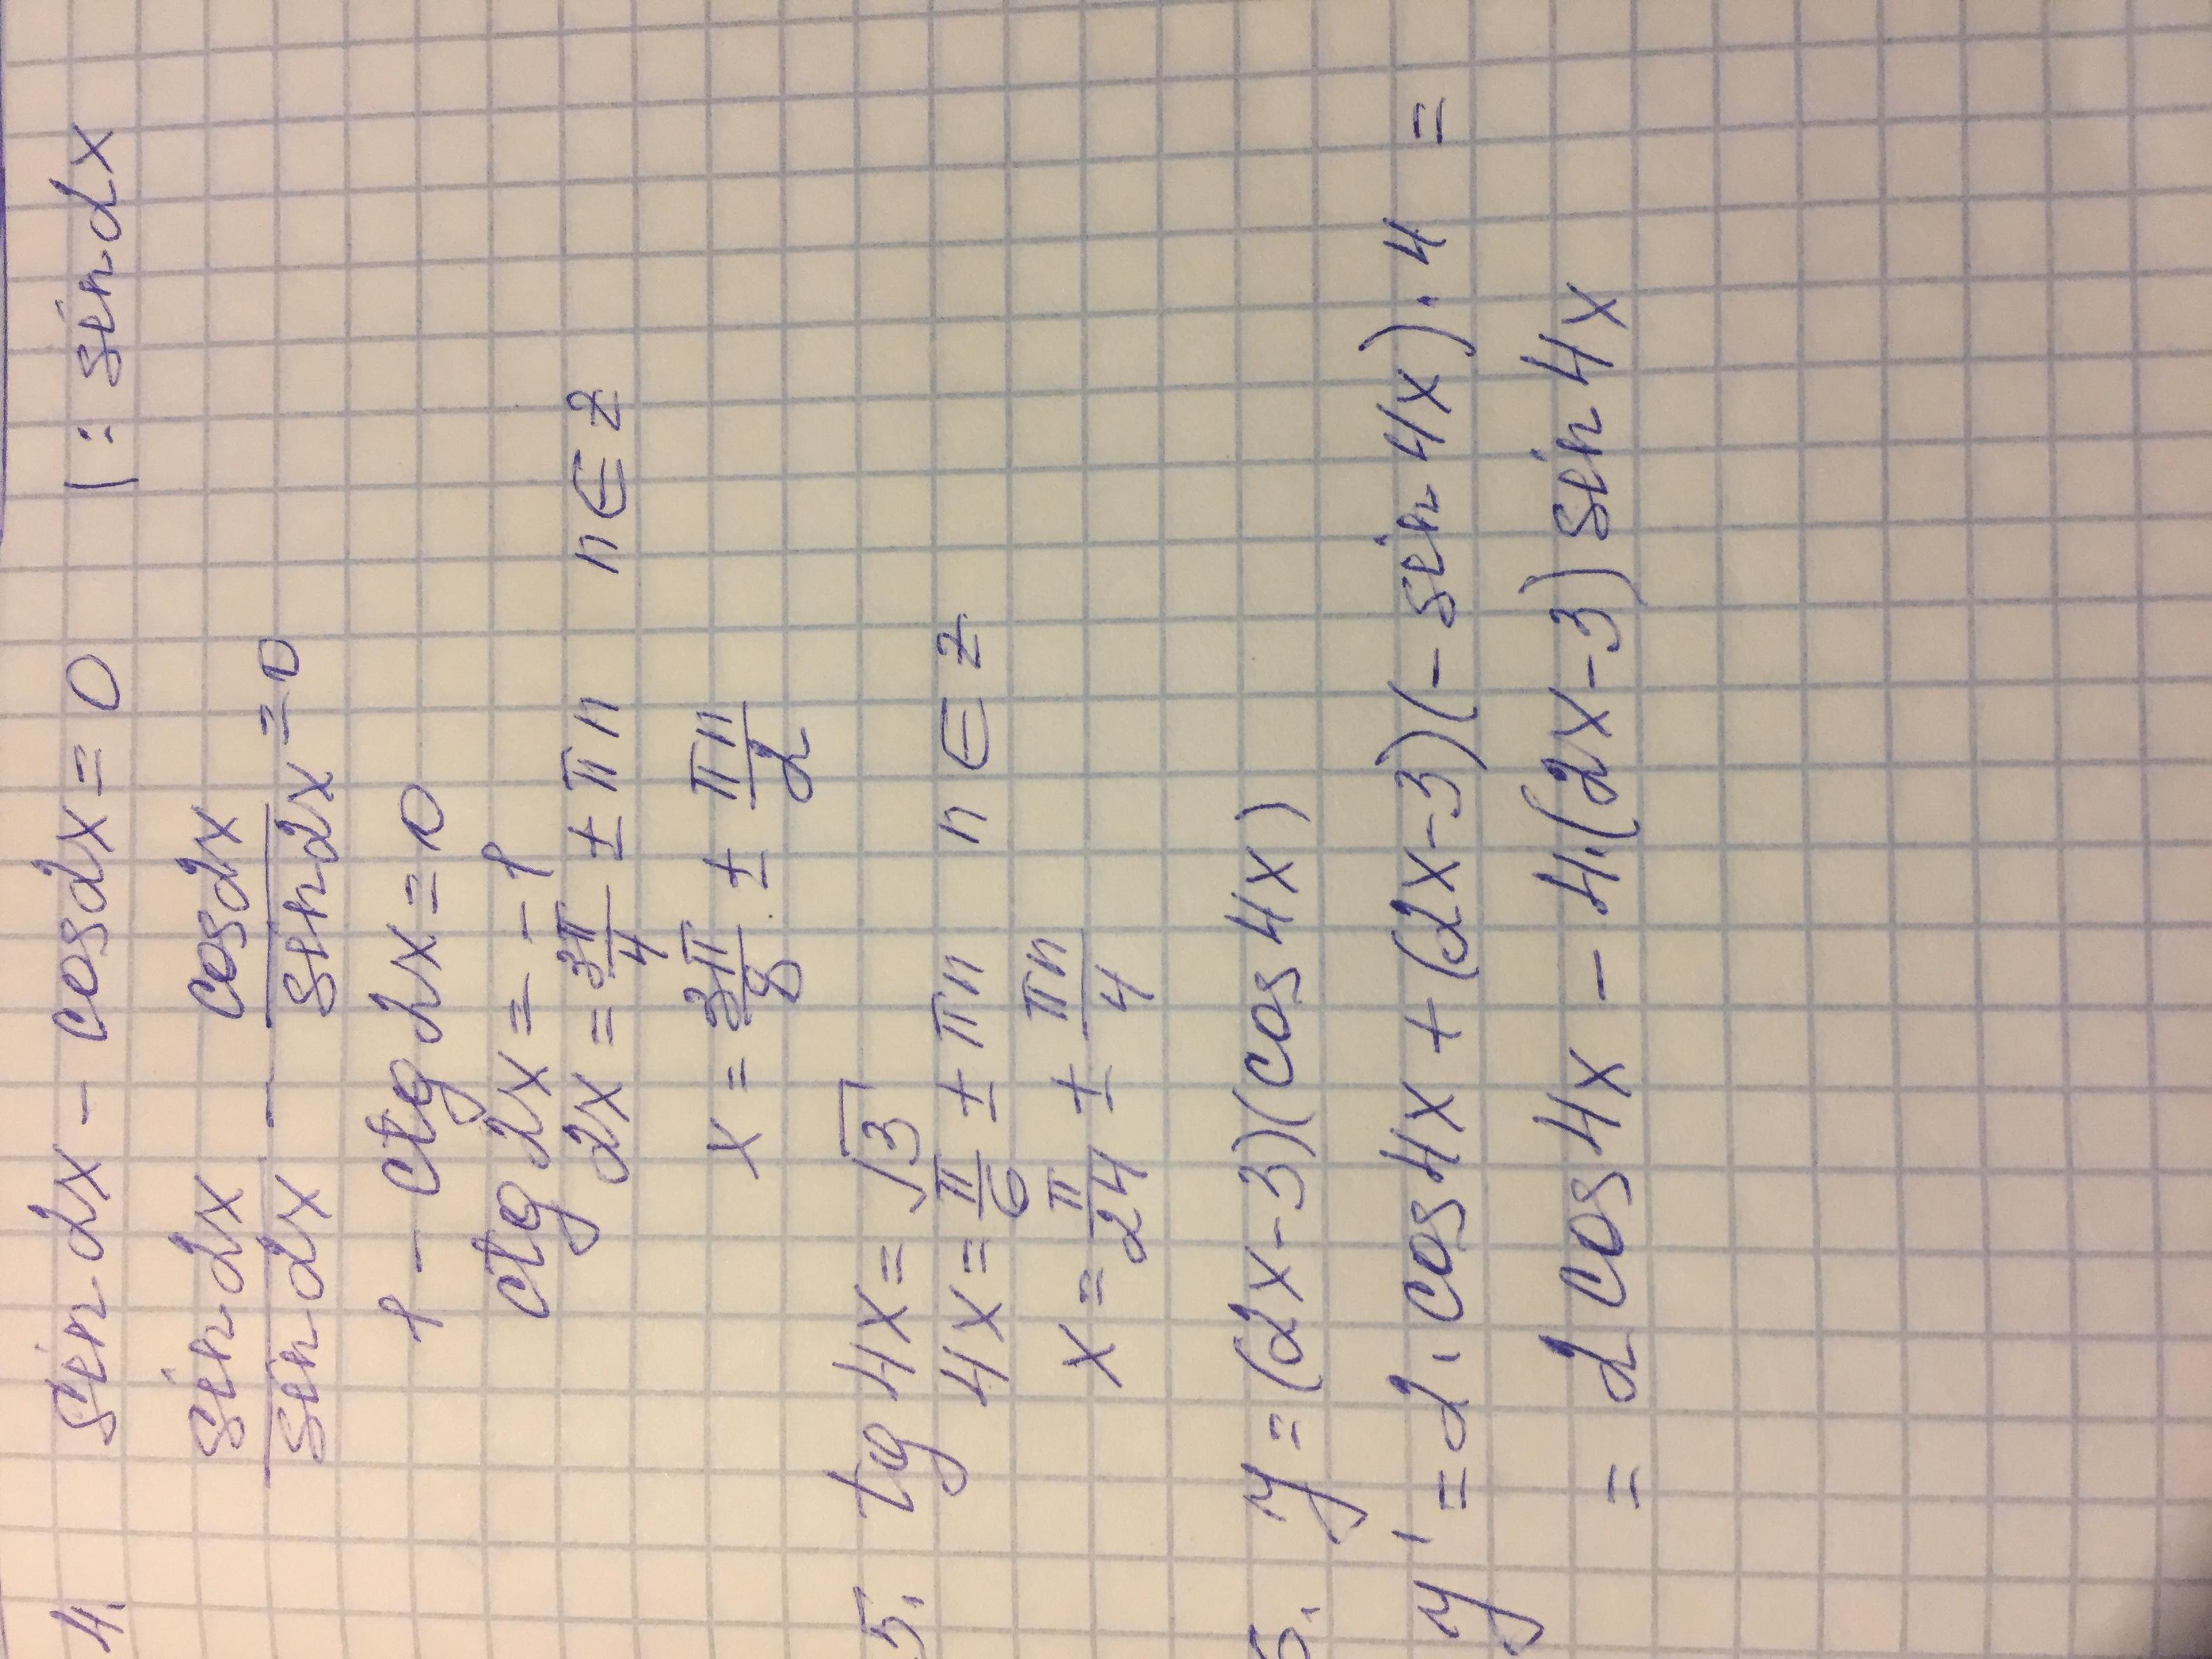 4. sin 2x - cos 2x = 0 |: sin 2x
sin 2x / sin 2x - cos 2x / sin 2x = 0
1 - ctg 2x = 0
ctg 2x = -1
2x = 3π/4 ± πn n ∈ Z
x = 3π/8 ± πn/2
5. tg 4x = √3
4x = π/6 ± πn n ∈ Z
x = π/24 ± πn/4
5. y = (2x-3)(cos 4x)
y' = 2 · cos 4x + (2x-3)(- sin 4x) · 4 =
= 2 cos 4x - 4·(2x-3) sin 4x